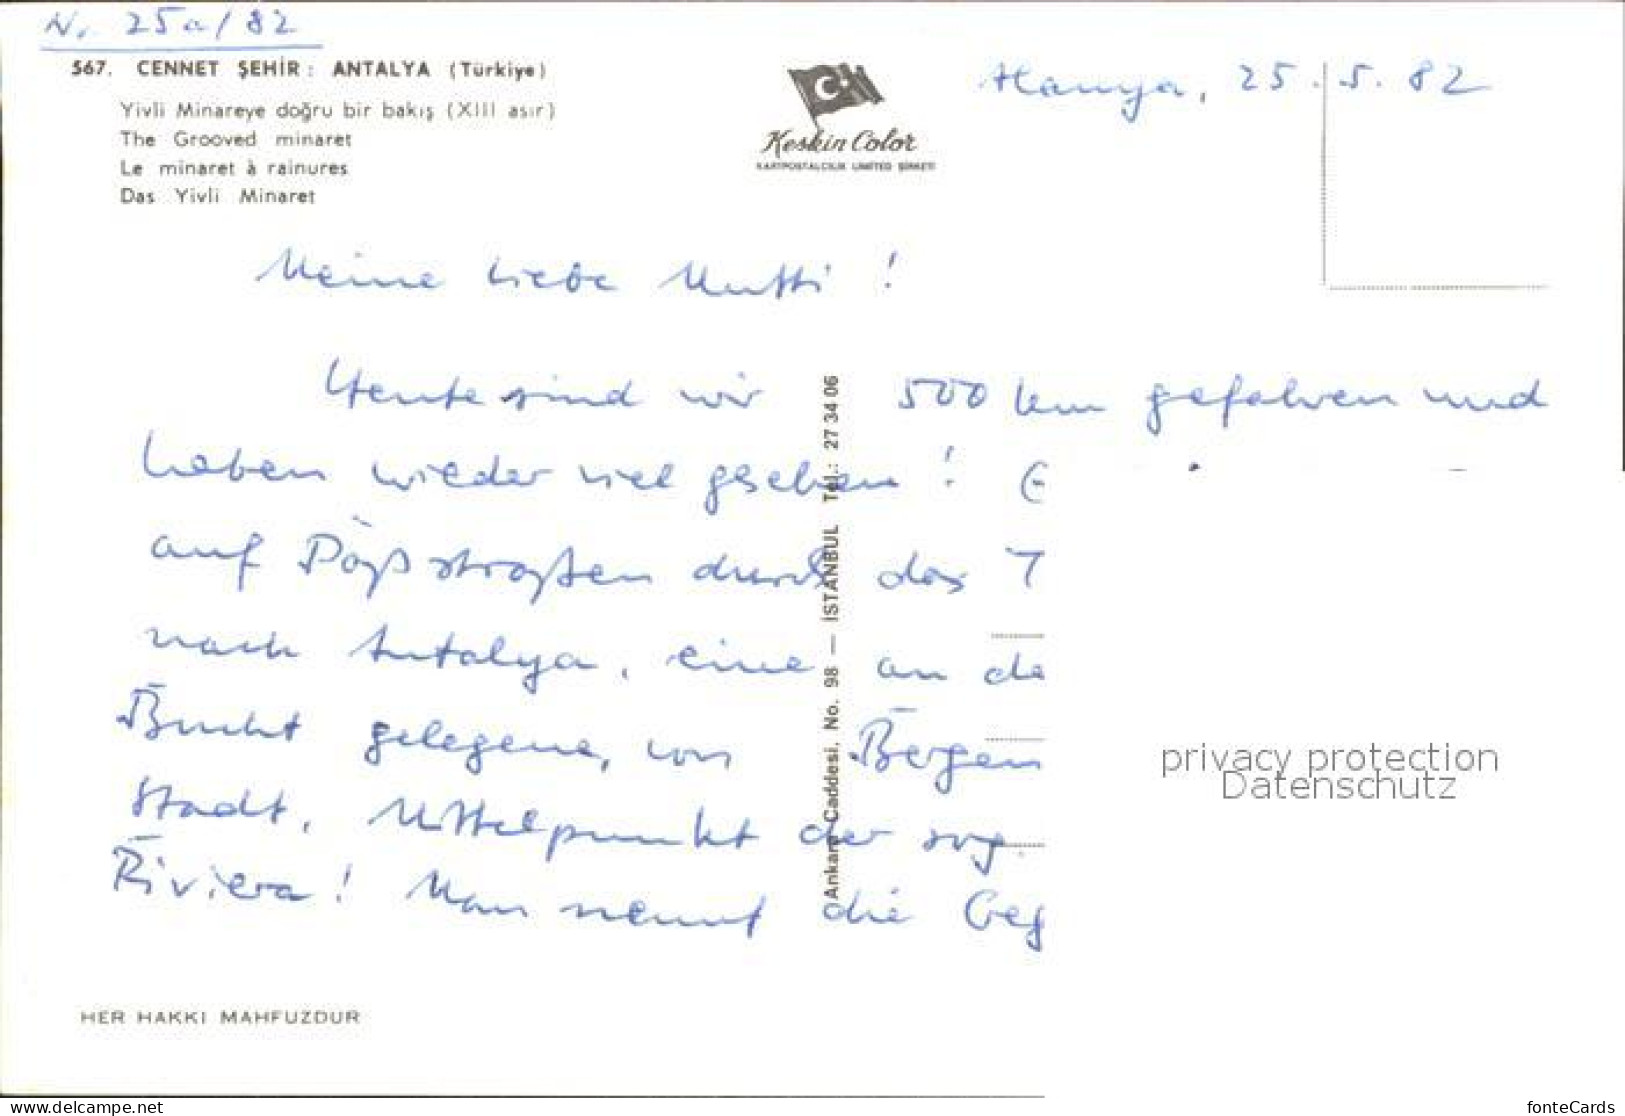 N. 25a/82
567. CENNET ŞEHİR: ANTALYA (Türkiye)
Yivli Minareye doğru bir bakış (XIII asır)
The Grooved minaret
Le minaret à rainures
Das Yivli Minaret
Keskin Color
KARTPOSTALCILIK LIMITED ŞİRKETİ
Alanya, 25.5.82
Meine liebe Mutti!
Heute sind wir 500 km gefahren und
haben wieder viel gesehen!
auf Paßstraßen durch das T
nach Antalya, eine an de
Bucht gelegene, von Bergen
Stadt, Mittelpunkt der sog.
Riviera! Man nennt die Geg
Ankara Caddesi, No. 98 — İSTANBUL Tel.: 27 34 06
privacy protection
Datenschutz
HER HAKKI MAHFUZDUR
www.delcampe.net
fonteCards